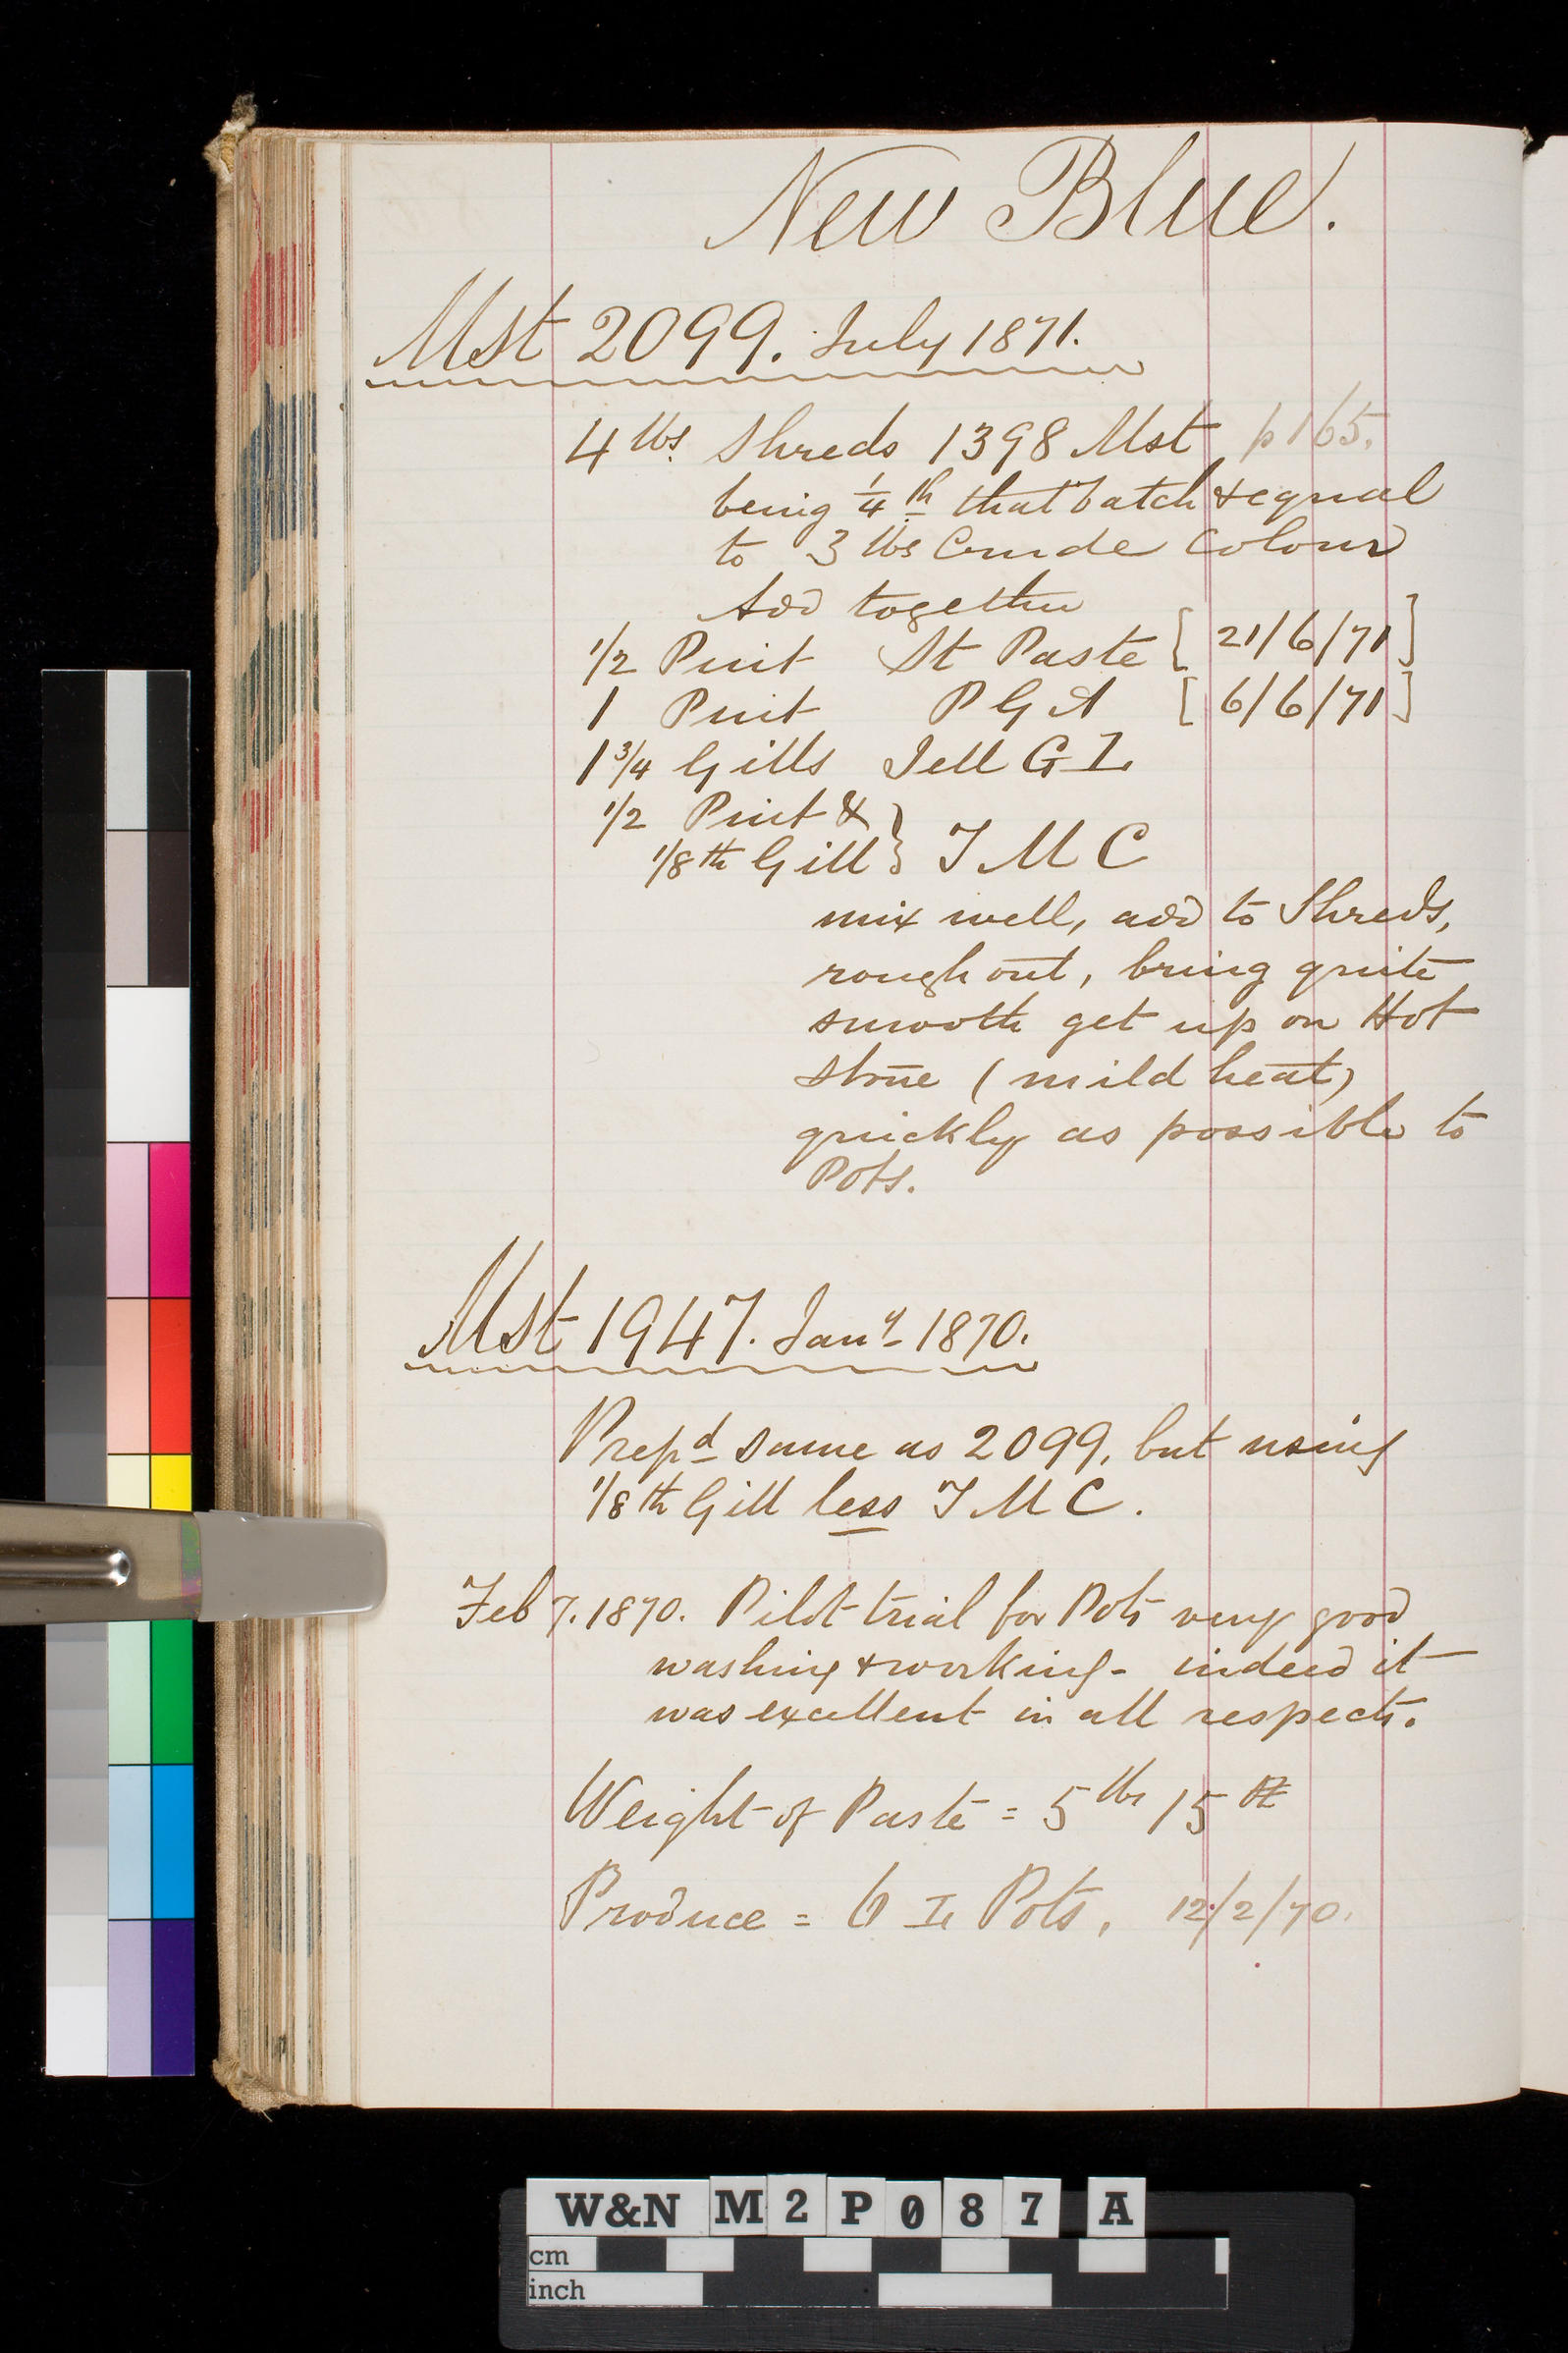 New Blue.
Mst 2099. July 1871.
4 lbs. Shreds 1398 Mst p 165.
being 1/4 th that batch & equal
to 3 lbs Crude Colour
Add together
1/2 Pint St Paste [21/6/71]
1 Pint P G A [6/6/71]
1 3/4 Gills Jell G I
1/2 Pint &
1/8 th Gill } T M C
mix well, add to Shreds,
rough out, bring quite
smooth get up on Hot
stone (mild heat)
quickly as possible to
Pots.
Mst 1947. Jany 1870.
Prepd same as 2099, but using
1/8 th Gill less T M C.
Feb 7. 1870. Pilot trial for Pots very good
washing & working - indeed it
was excellent in all respects.
Weight of Paste = 5 lbs 15
Produce = Pots, 12/2/70.
W&N M2P087 A
cm
inch